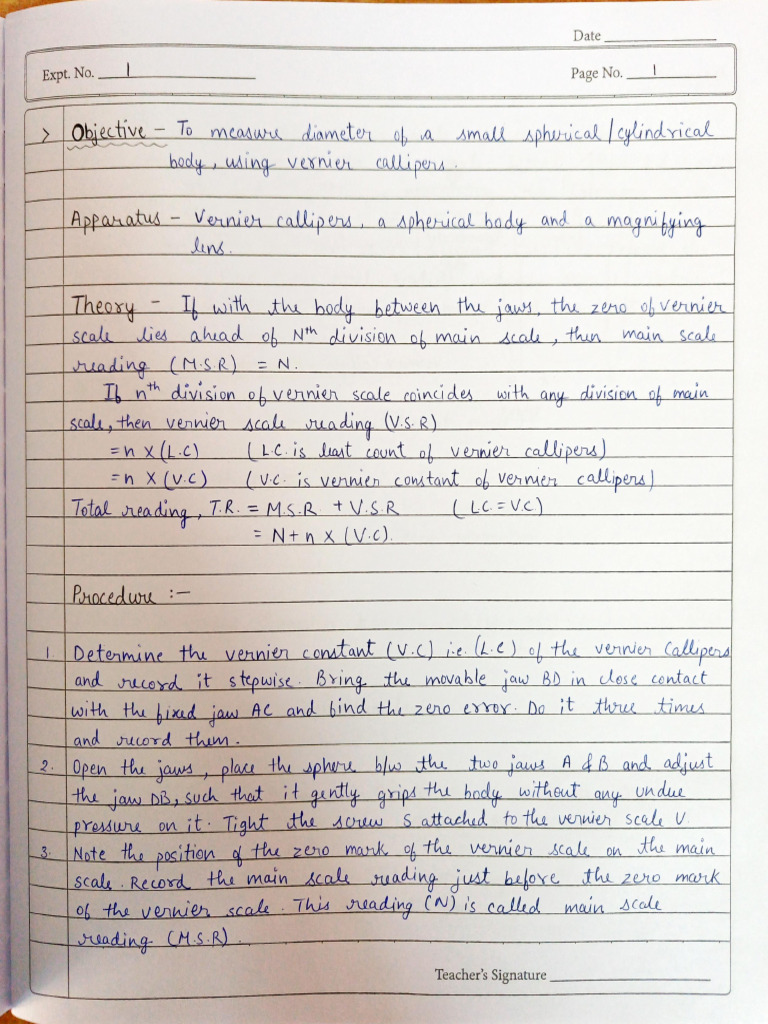 Date
Expt. No. 1
Page No. 1
> Objective - To measure diameter of a small spherical/cylindrical
body, using vernier callipers.
Apparatus - Vernier callipers, a spherical body and a magnifying
lens.
Theory - If with the body between the jaws, the zero of vernier
scale lies ahead of Nth division of main scale, then main scale
reading (M.S.R) = N.
If nth division of vernier scale coincides with any division of main
scale, then vernier scale reading (V.S.R)
= n X (L.C) (L.C. is least count of vernier callipers)
= n X (V.C) (V.C. is vernier constant of vernier callipers)
Total reading, T.R. = M.S.R + V.S.R (LC. = V.C)
= N + n X (V.C).
Procedure :-
1. Determine the vernier constant (V.C) i.e. (L.C) of the vernier Callipers
and record it stepwise. Bring the movable jaw BD in close contact
with the fixed jaw AC and find the zero error. Do it three times
and record them.
2. Open the jaws, place the sphere b/w the two jaws A & B and adjust
the jaw DB, such that it gently grips the body without any undue
pressure on it. Tight the screw S attached to the vernier scale V.
3. Note the position of the zero mark of the vernier scale on the main
scale. Record the main scale reading just before the zero mark
of the vernier scale. This reading (N) is called main scale
reading (M.S.R).
Teacher's Signature